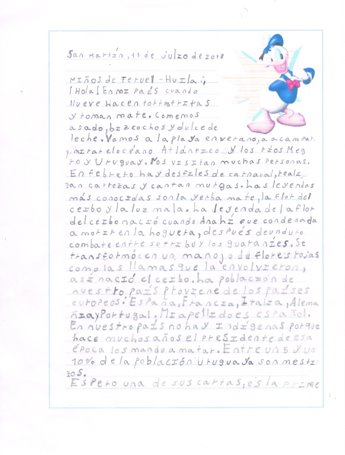 San Martín, 11 de julzo de 2018
Niños de Teruel - Huila:
¡Hola! En mi país cuando
llueve hacen tortas fritas
y toman mate. Comemos
asado, bizcochos y dulce de
leche. Vamos a la playa en verano, a acampar
y mirar el océano Atlántico y los ríos Neg
ro y Uruguay. Nos visitan muchas personas.
En febrero hay desfiles de carnaval, reali
zan carrozas y cantan murgas. Las leyendas
más conocidas son la yerba mate, la flor del
ceibo y la luz mala. La leyenda de la flor
del ceibo nació cuando Anahí que condenada
a morir en la hoguera, después de un duro
combate entre su tribu y los guaraníes. Se
transformó en un manojo de flores rojas
como las llamas que la envolvieron,
así nació el ceibo. La población de
nuestro país proviene de los países
europeos: España, Francia, Italia, Alema
nia y Portugal. Mi apellido es español.
En nuestro país no hay indígenas porque
hace muchos años el presidente de esa
época los mando a matar. Entre un 5 y un
10% de la población Uruguaya son mesti
zos.
Espero una de sus cartas, es la prime